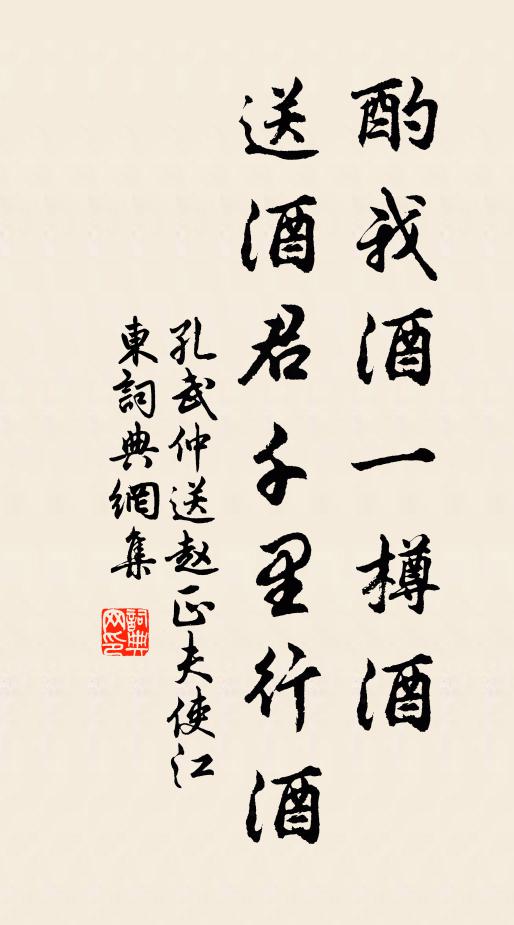 酌我酒一樽酒
送酒君千里行酒
孔武仲送赵正夫使江
東詞典網集
詞典
网印